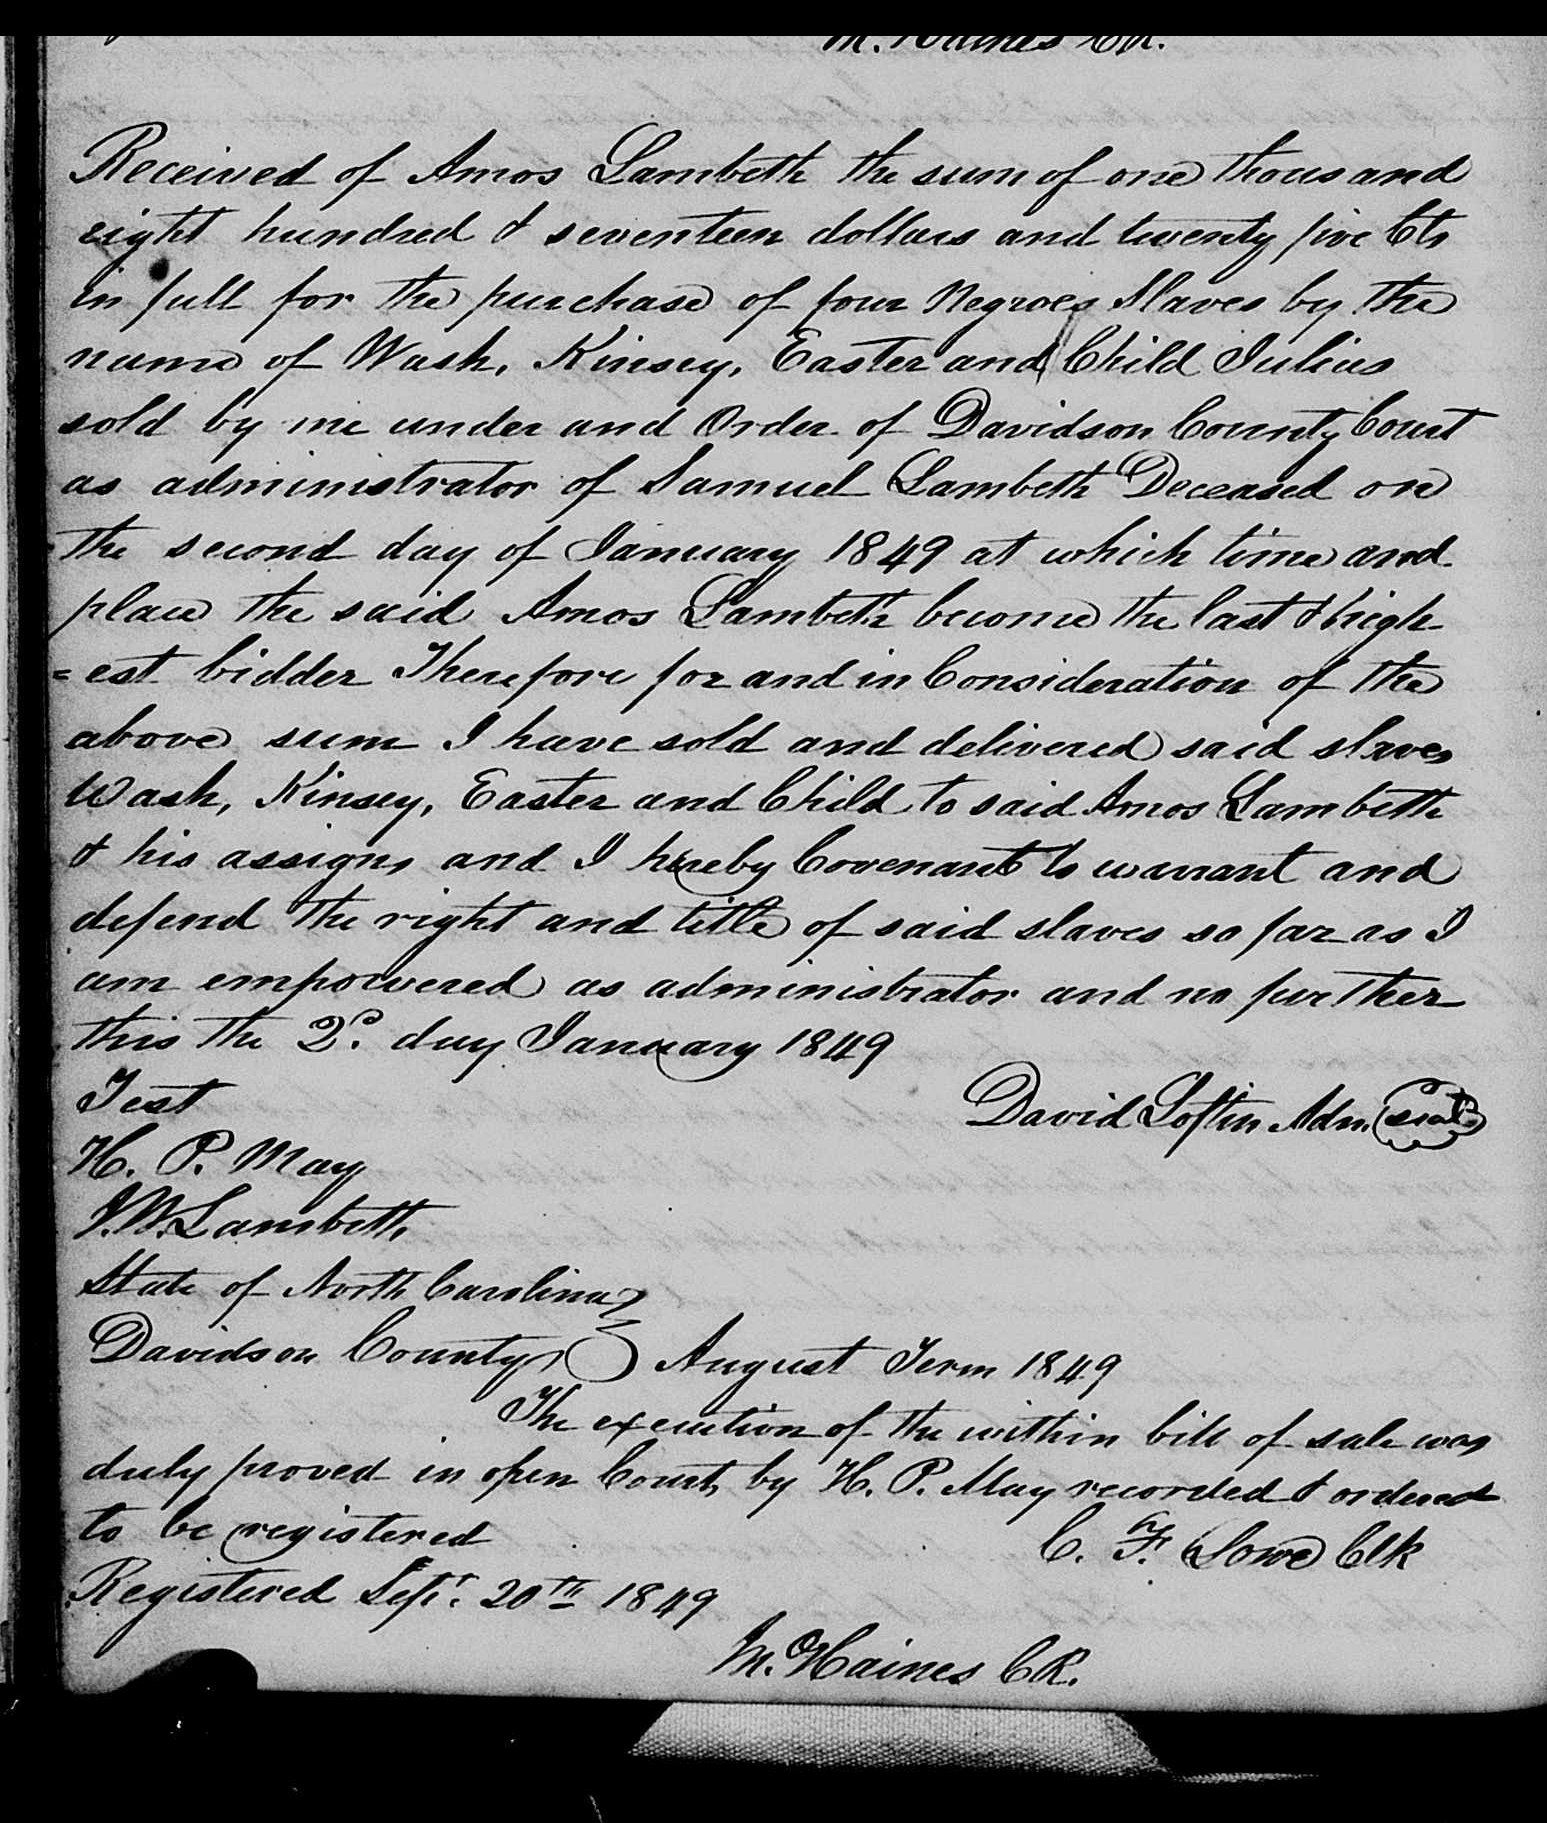 M. Haines CR.
Received of Amos Lambeth the sum of one thousand
eight hundred & seventeen dollars and twenty five Cts
in full for the purchase of four Negroes Slaves by the
name of Wash, Kinsey, Easter and Child Julius
sold by me under and Order of Davidson County Court
as administrator of Samuel Lambeth Deceased on
the second day of January 1849 at which time and
place the said Amos Lambeth become the last & high-
=est bidder Therefore for and in Consideration of the
above sum I have sold and delivered said slaves
Wash, Kinsey, Easter and Child to said Amos Lambeth
& his assigns and I hereby Covenant to warrant and
defend the right and title of said slaves so far as I
am empowered as administrator and no further
this the 2d. day January 1849
Test
David Loftin Adm. Seal
H. P. May
J.W. Lambeth
State of North Carolina
Davidson County } August Term 1849
The execution of the within bill of sale was
duly proved in open Court by H. P. May recorded & ordered
to be registered
C. F. Lowe Clk
Registered Sept. 20th 1849
M. Haines CR.